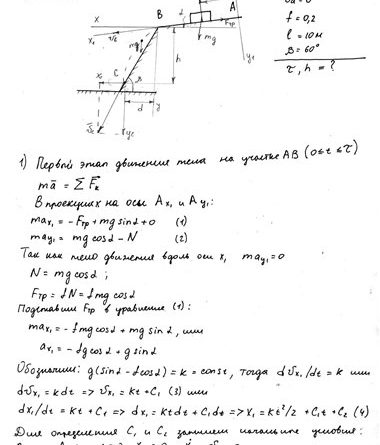 X
B
A
X₁
Fтр
mg
mg
y₁
h
C
β
d
y
f = 0,2
l = 10м
β = 60°
τ, h = ?
1) Первый этап движения тела на участке АВ (0≤t≤τ)
mā = ΣF̄ₖ
В проекциях на оси Ax₁ и Ay₁:
maₓ₁ = -Fтр + mg sinα + 0 (1)
maᵧ₁ = mg cosα - N (2)
Так как тело движения вдоль оси x₁ maᵧ₁ = 0
N = mg cosα ;
Fтр = fN = fmg cosα
Подставим Fтр в уравнение (1):
maₓ₁ = -fmg cosα + mg sinα, или
aₓ₁ = -fg cosα + g sinα
Обозначим: g(sinα - fcosα) = k = const, тогда dϑₓ₁/dt = k или
dϑₓ₁ = kdt => ϑₓ₁ = kt + C₁ (3) или
dx₁/dt = kt + C₁ => dx₁ = ktdt + C₁dt => x₁ = kt²/2 + C₁t + C₂ (4)
Для определения C₁ и C₂ запишем начальные условия: